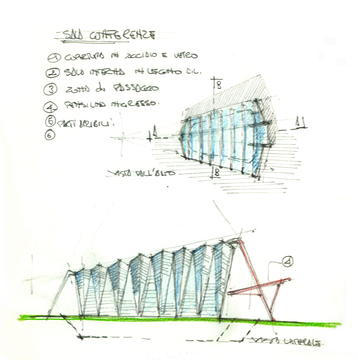 SALA CONFERENZE
① COPERTURA IN ACCIAIO E VETRO
② SALA INTERNA IN LEGNO
③ ZONA DI PASSAGGIO
④ PENSILINA INGRESSO.
⑤ PARTI APRIBILI.
⑥
B
A
A
B
VISTA DALL'ALTO
④
VISTA LATERALE